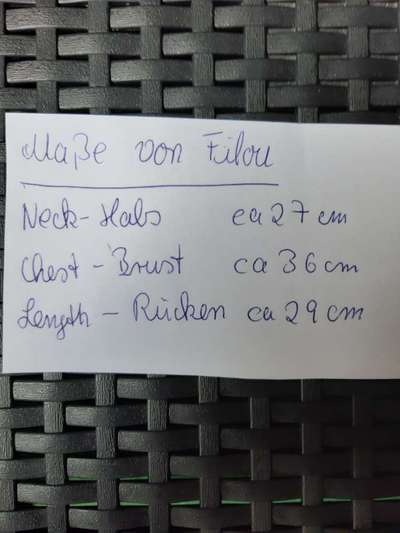 Maße von Filou
Neck-Hals ca 27 cm
Chest - Brust ca 36 cm
Length - Rücken ca 29 cm